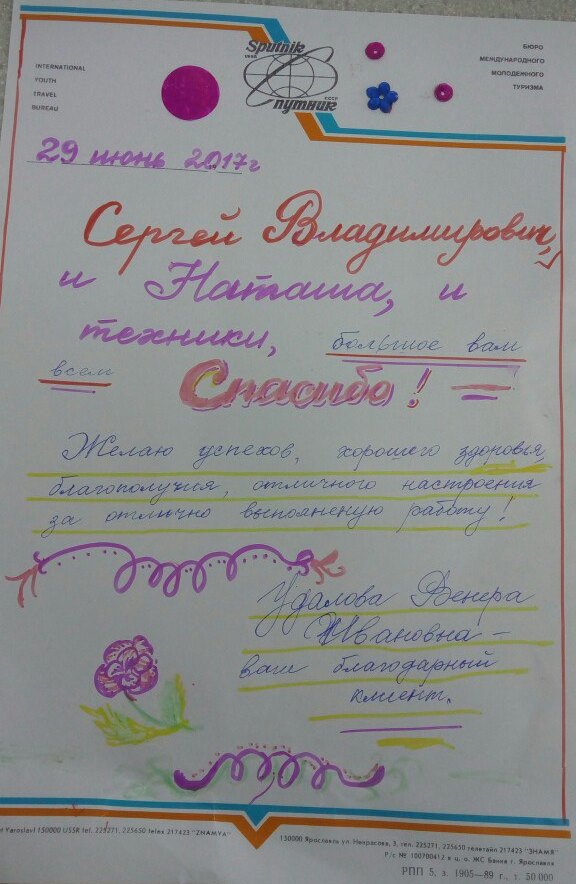 INTERNATIONAL
YOUTH
TRAVEL
BUREAU
Sputnik
1958
СССР
Спутник
БЮРО
МЕЖДУНАРОДНОГО
МОЛОДЕЖНОГО
ТУРИЗМА
29 июнь 2017г
Сергей Владимирович,
и Наташа, и
техники, большое вам
всем Спасибо!
Желаю успехов, хорошего здоровья,
благополучия, отличного настроения
за отлично выполненую работу!
Удалова Венера
Ивановна –
ваш благодарный
клиент.
Yaroslavl 150000 USSR tel. 225271, 225650 telex 217423 "ZNAMYA"
150000 Ярославль ул. Некрасова, 3, тел. 225271, 225650 телетайп 217423 "ЗНАМЯ"
Р/с № 100700412 в ц. о. ЖС Банка г. Ярославля
РПП 5, з. 1905—89 г., т. 50 000